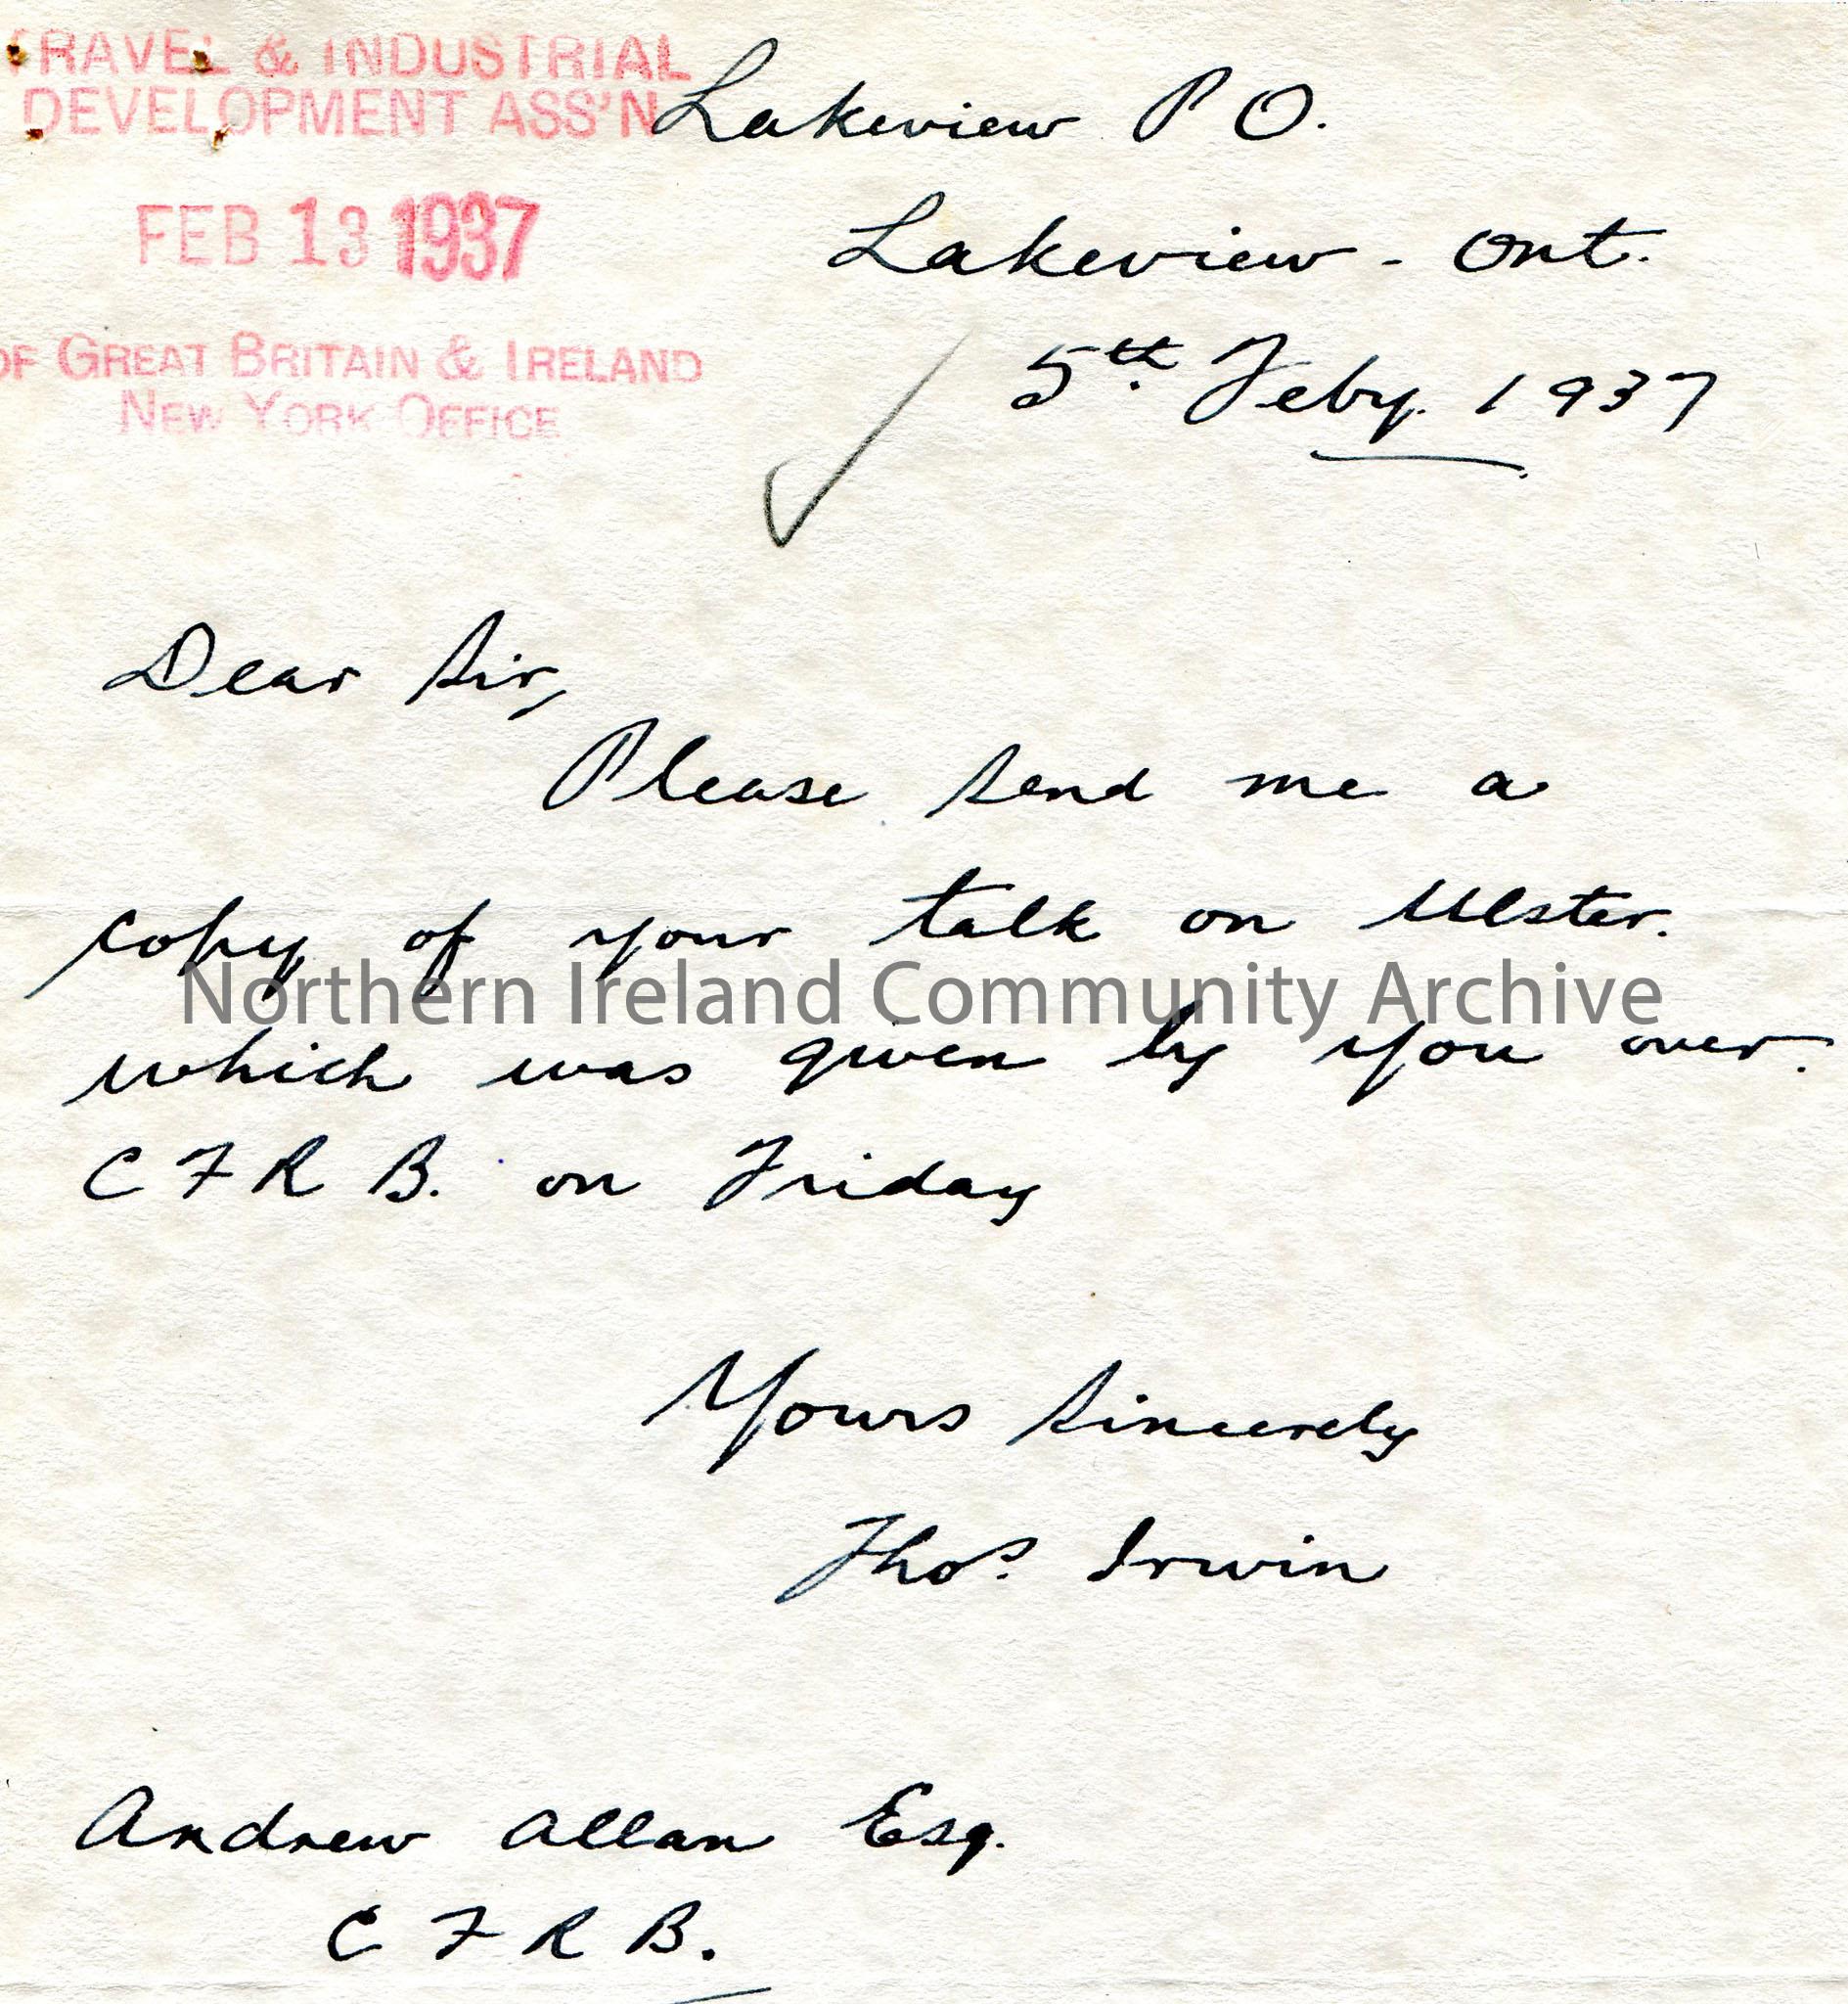 TRAVEL & INDUSTRIAL
DEVELOPMENT ASS'N
FEB 13 1937
OF GREAT BRITAIN & IRELAND
NEW YORK OFFICE
Lakeview P O.
Lakeview - Ont.
5th Feby. 1937
Dear Sir,
Please send me a
copy of your talk on Ulster.
Northern Ireland Community Archive
which was given by you over.
C F R B. on Friday
Yours Sincerely
Thos. Irwin
Andrew Allan Esq.
C F R B.